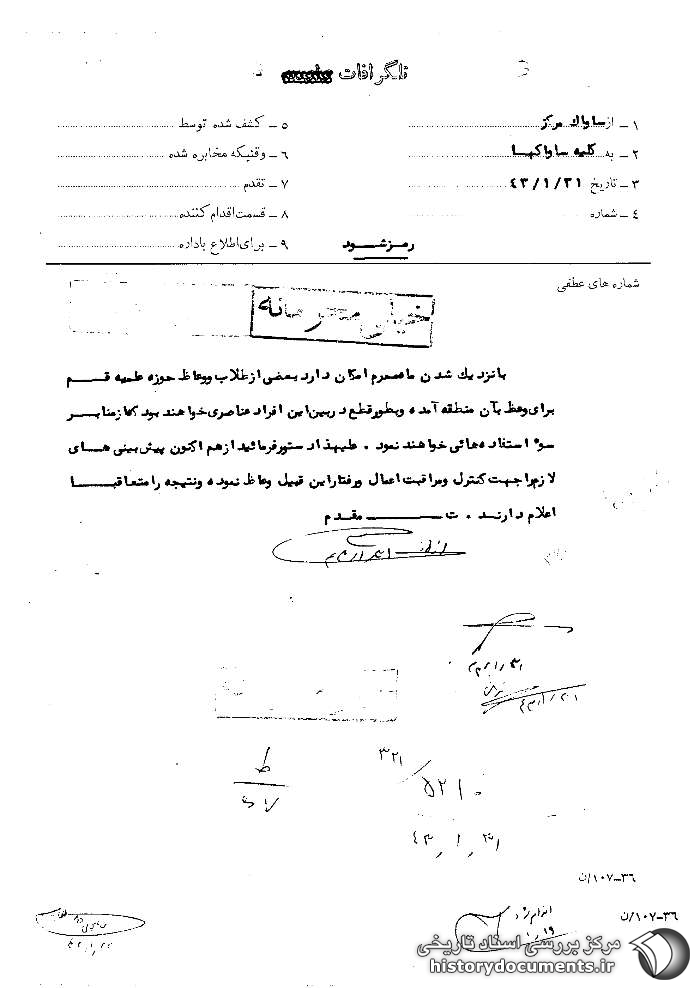 تلگرافات
۱ ـ از ساواك مركز
۲ ـ به كليه ساواكها
۳ ـ تاريخ ۴۳/۱/۳۱
۴ ـ شماره
۵ ـ كشف شده توسط
۶ ـ وقتيكه مخابره شده
۷ ـ تقدم
۸ ـ قسمت اقدام كننده
۹ ـ براى اطلاع باداره
رمز شود
شماره هاى عطفى
خيلى محرمانه
بانزديك شدن ماه محرم امكان دارد بعضى از طلاب ووعاظ حوزه علميه قم
براى وعظ بآن منطقه آمده وبطور قطع دربين اين افراد عناصرى خواهند بود كه از منابر
سوء استفاده هائى خواهند نمود . عليهذا دستور فرمائيد از هم اكنون پيش بينى هاى
لازم را جهت كنترل ومراقبت اعمال ورفتار اين قبيل وعاظ نموده ونتيجه را متعاقبا
اعلام دارند . ت مقدم
۴۳/۱/۳۱
۳۲۱/۵۲۱۰
۴۳/۱/۳۱
۳۶-۱۰۷/ن
۳۶-۱۰۷/ن
مركز بررسى اسناد تاريخى
historydocuments.ir